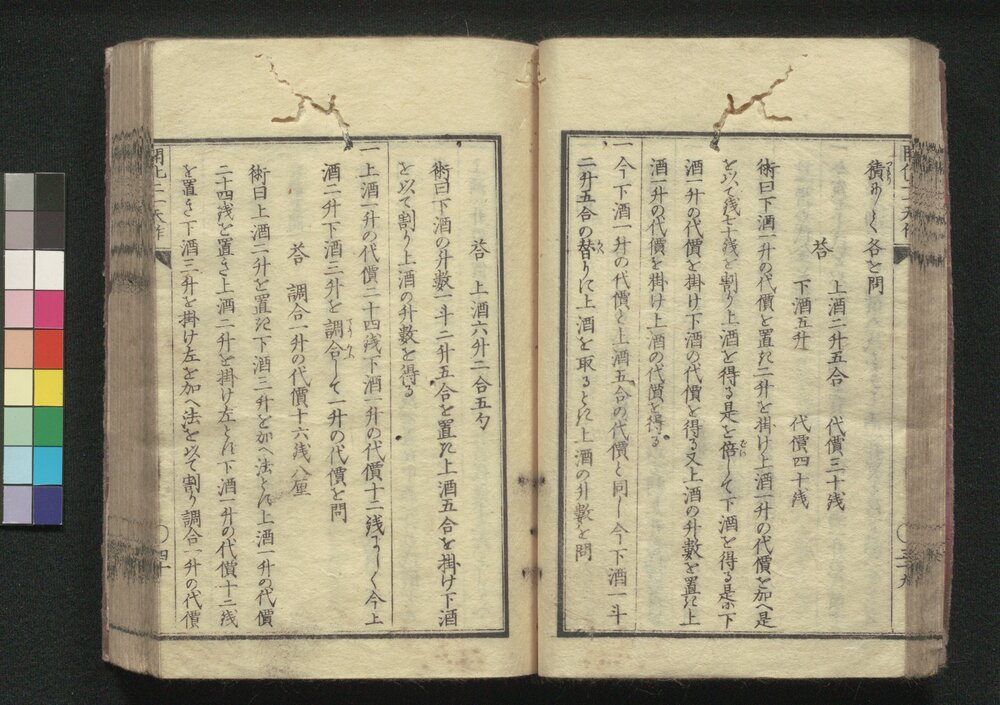 積あしく各を問
答 上酒二升五合 代價三十残
下酒五升 代價四十残
術曰下酒一升の代價を置き二升を掛け上酒一升の代價を加へ是
を以て残七十残を割り上酒を得る是を倍して下酒を得る是に下
酒一升の代價を掛け下酒の代價を得る又上酒の升數を置き上
酒一升の代價を掛け上酒の代價を得る
一今下酒一升の代價と上酒五合の代價と同し今下酒一斗
二升五合の替りに上酒を取るときに上酒の升數を問
答 上酒六升二合五勺
術曰下酒の升數一斗二升五合を置き上酒五合を掛け下酒
を以て割り上酒の升數を得る
一上酒一升の代價二十四残下酒一升の代價十二残にして今上
酒二升下酒三升を調合して一升の代價を問
答 調合一升の代價十六残八厘
術曰上酒二升を置き下酒三升を加へ法とし上酒一升の代價
二十四残を置き上酒二升を掛け左とし下酒一升の代價十二残
を置き下酒三升を掛け左を加へ法を以て割り調合一升の代價